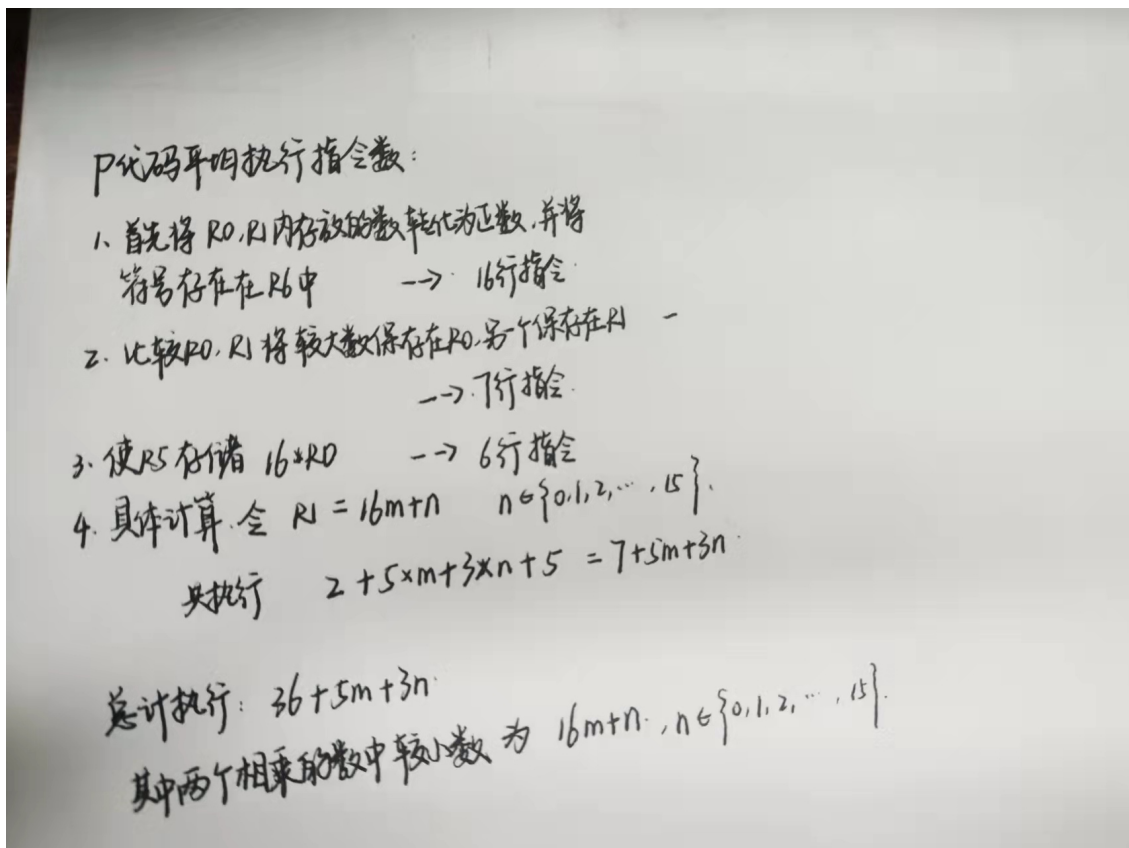 P代码平均执行指令数:
1、首先将 R0,R1内存放的数转化为正数,并将
符号存在在R6中 --> 16行指令
2. 比较R0,R1将较大数保存在R0,另一个保存在R1
--> 7行指令
3. 使R5存储 16*R0 --> 6行指令
4. 具体计算.令 R1 = 16m+n n∈{0,1,2,…,15}.
共执行 2+5×m+3×n+5 = 7+5m+3n
总计执行: 36+5m+3n
其中两个相乘的数中较小数为 16m+n.,n∈{0,1,2,…,15}.